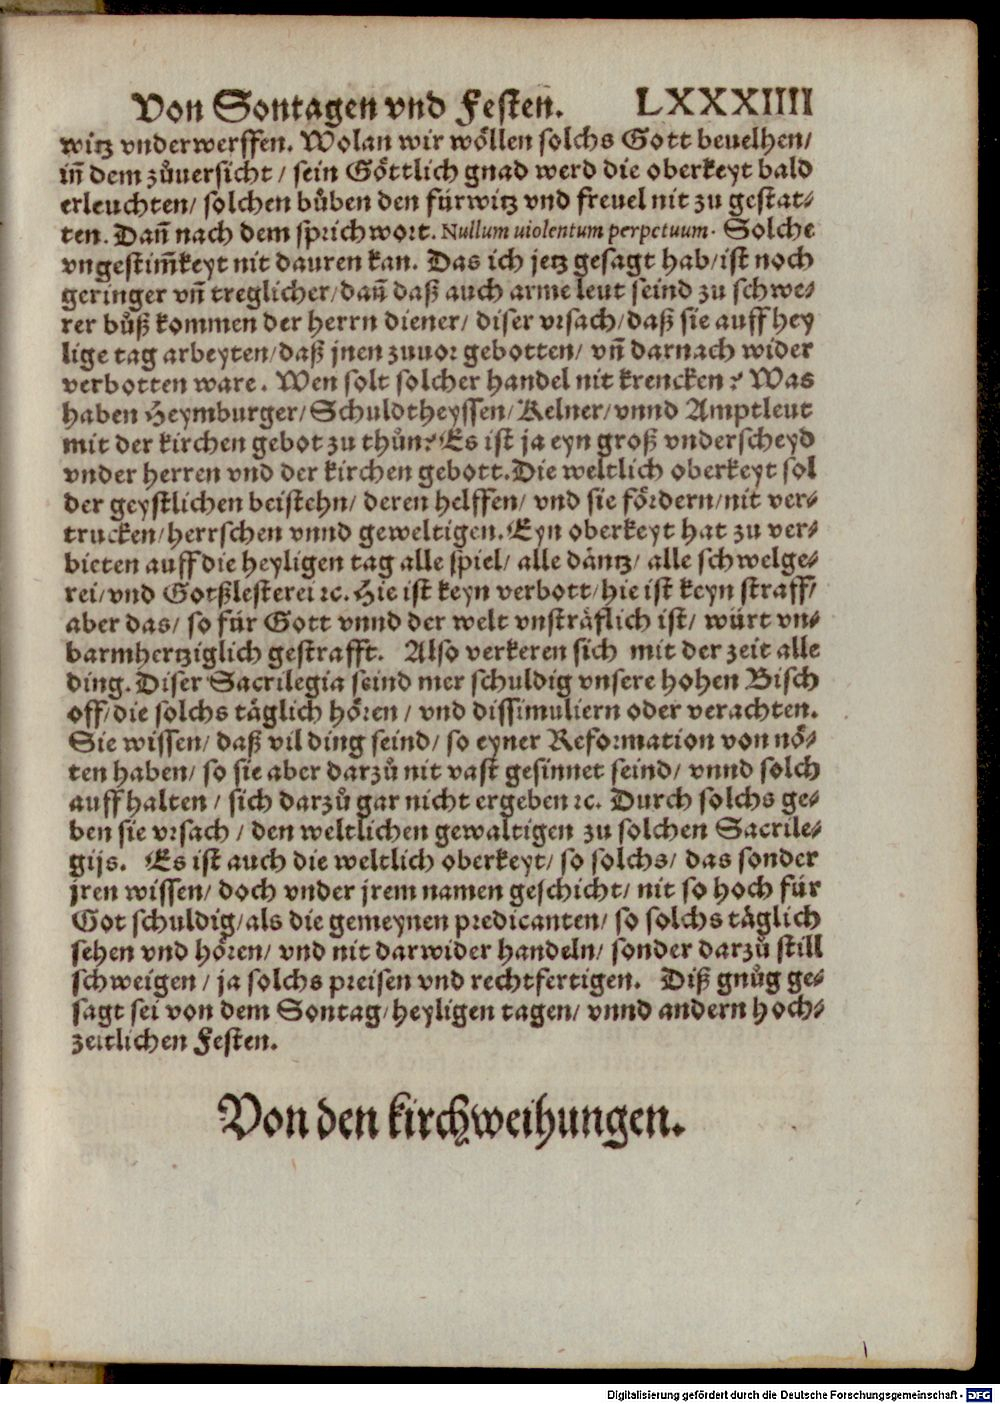 Von Sontagen vnd Festen. LXXXIIII
witz vnderwerffen. Wolan wir wöllen solchs Gott beuelhen/
iñ dem zůuersicht / sein Göttlich gnad werd die oberkeyt bald
erleuchten/ solchen bůben den fürwitz vnd freuel nit zu gestat⸗
ten. Dañ nach dem sprichwort. Nullum uiolentum perpetuum. Solche
vngestim̃keyt nit dauren kan. Das ich jetz gesagt hab/ist noch
geringer vñ treglicher/dañ daß auch arme leut seind zu schwe⸗
rer bůß kommen der herrn diener/ diser vrsach/daß sie auff hey
lige tag arbeyten/daß jnen zuuor gebotten/ vñ darnach wider
verbotten ware. Wen solt solcher handel nit krencken? Was
haben Heymburger/Schuldtheyssen/Kelner/vnnd Amptleut
mit der kirchen gebot zu thůn? Es ist ja eyn groß vnderscheyd
vnder herren vnd der kirchen gebott. Die weltlich oberkeyt sol
der geystlichen beistehn/ deren helffen/ vnd sie fördern/nit ver⸗
trucken/herrschen vnnd geweltigen. Eyn oberkeyt hat zu ver⸗
bieten auff die heyligen tag alle spiel/ alle däntz/ alle schwelge⸗
rei/vnd Gotßlesterei ꝛc. Hie ist keyn verbott/hie ist keyn straff/
aber das/ so für Gott vnnd der welt vnsträflich ist/ würt vn⸗
barmhertziglich gestrafft. Also verkeren sich mit der zeit alle
ding. Diser Sacrilegia seind mer schuldig vnsere hohen Bisch
off/die solchs täglich hören / vnd dissimuliern oder verachten.
Sie wissen/ daß vil ding seind/ so eyner Reformation von nö⸗
ten haben/ so sie aber darzů nit vast gesinnet seind/ vnnd solch
auff halten / sich darzů gar nicht ergeben ꝛc. Durch solchs ge⸗
ben sie vrsach / den weltlichen gewaltigen zu solchen Sacrile⸗
gijs. Es ist auch die weltlich oberkeyt/ so solchs/ das sonder
jren wissen/ doch vnder jrem namen geschicht/ nit so hoch für
Got schuldig/als die gemeynen predicanten/ so solchs täglich
sehen vnd hören/ vnd nit darwider handeln/ sonder darzů still
schweigen / ja solchs preisen vnd rechtfertigen. Diß gnůg ge⸗
sagt sei von dem Sontag/heyligen tagen/ vnnd andern hoch⸗
zeitlichen Festen.
Von den kirchweihungen.
Digitalisierung gefördert durch die Deutsche Forschungsgemeinschaft - DFG